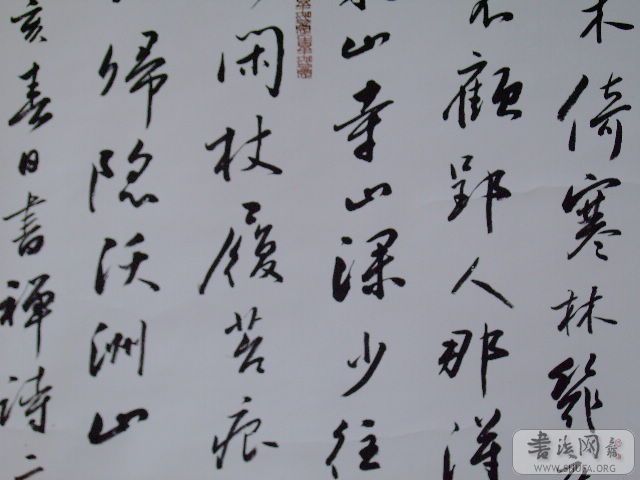 木倚寒林幾
不顧郢人那得
山寺山深少往
閑杖履苔痕
歸隱沃洲山
亥春日書禪詩二
書法网
WWW.SHUFA.ORG